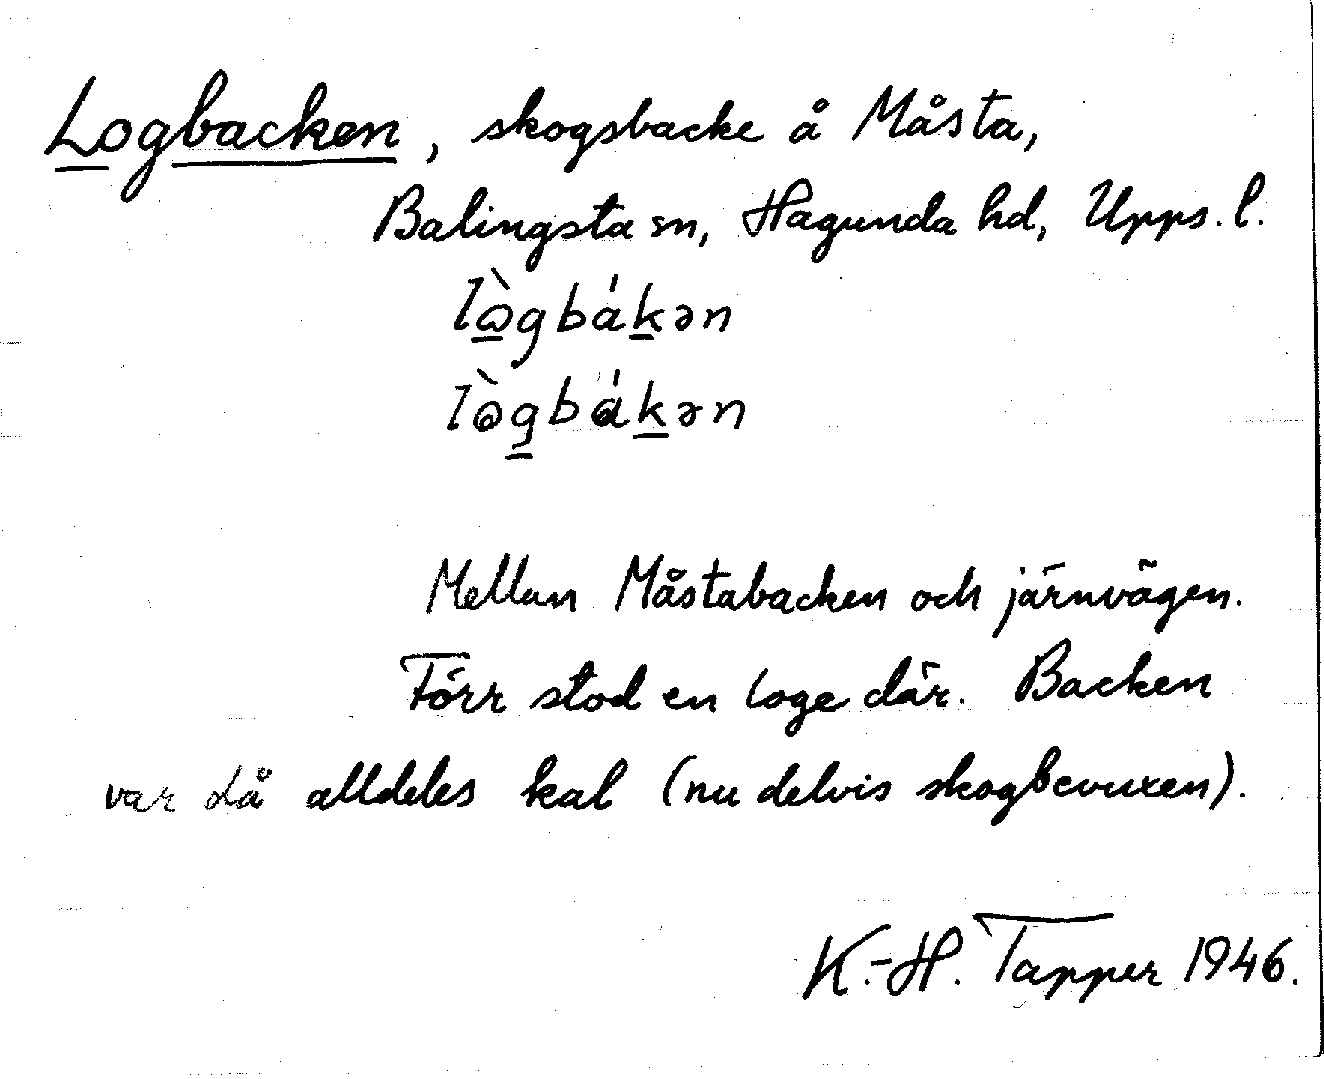 Logbacken, skogsbacke å Måsta,
Balingsta sn, Hagunda hd, Upps. l.
lɷ̀gbákən
lògbákən
Mellan Måstabacken och järnvägen.
Förr stod en loge där. Backen
var då alldeles kal (nu delvis skogbevuxen).
K.-H. Tapper 1946.